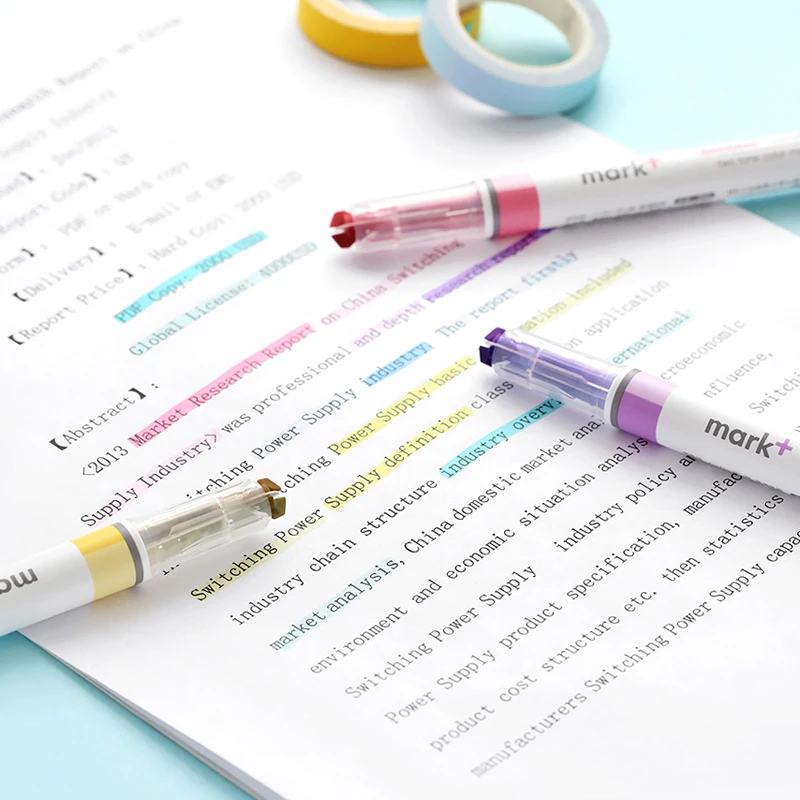 Research Report on China
Supply Industry
Report Code】: QY
PDF or Hard copy
【Delivery】, E-mail or EMS
【Report Price】, Hard Copy: 2000 USD
PDF Copy: 2000 USD
Global License: 4000USD
【Abstract】:
<2013 Market Research Report on China Switching
Supply Industry> was professional and depth research report
Power Supply industry. The report firstly
Switching Power Supply basic ation included
Switching Power Supply definition class application
industry chain structure industry overvi ernational
market analysis, China domestic market ana croeconomic
environment and economic situation analys nfluence,
Switching Power Supply industry policy Switching
Power Supply product specification, manufac
product cost structure etc. then statistics
manufacturers Switching Power Supply capac
mark+
mark+